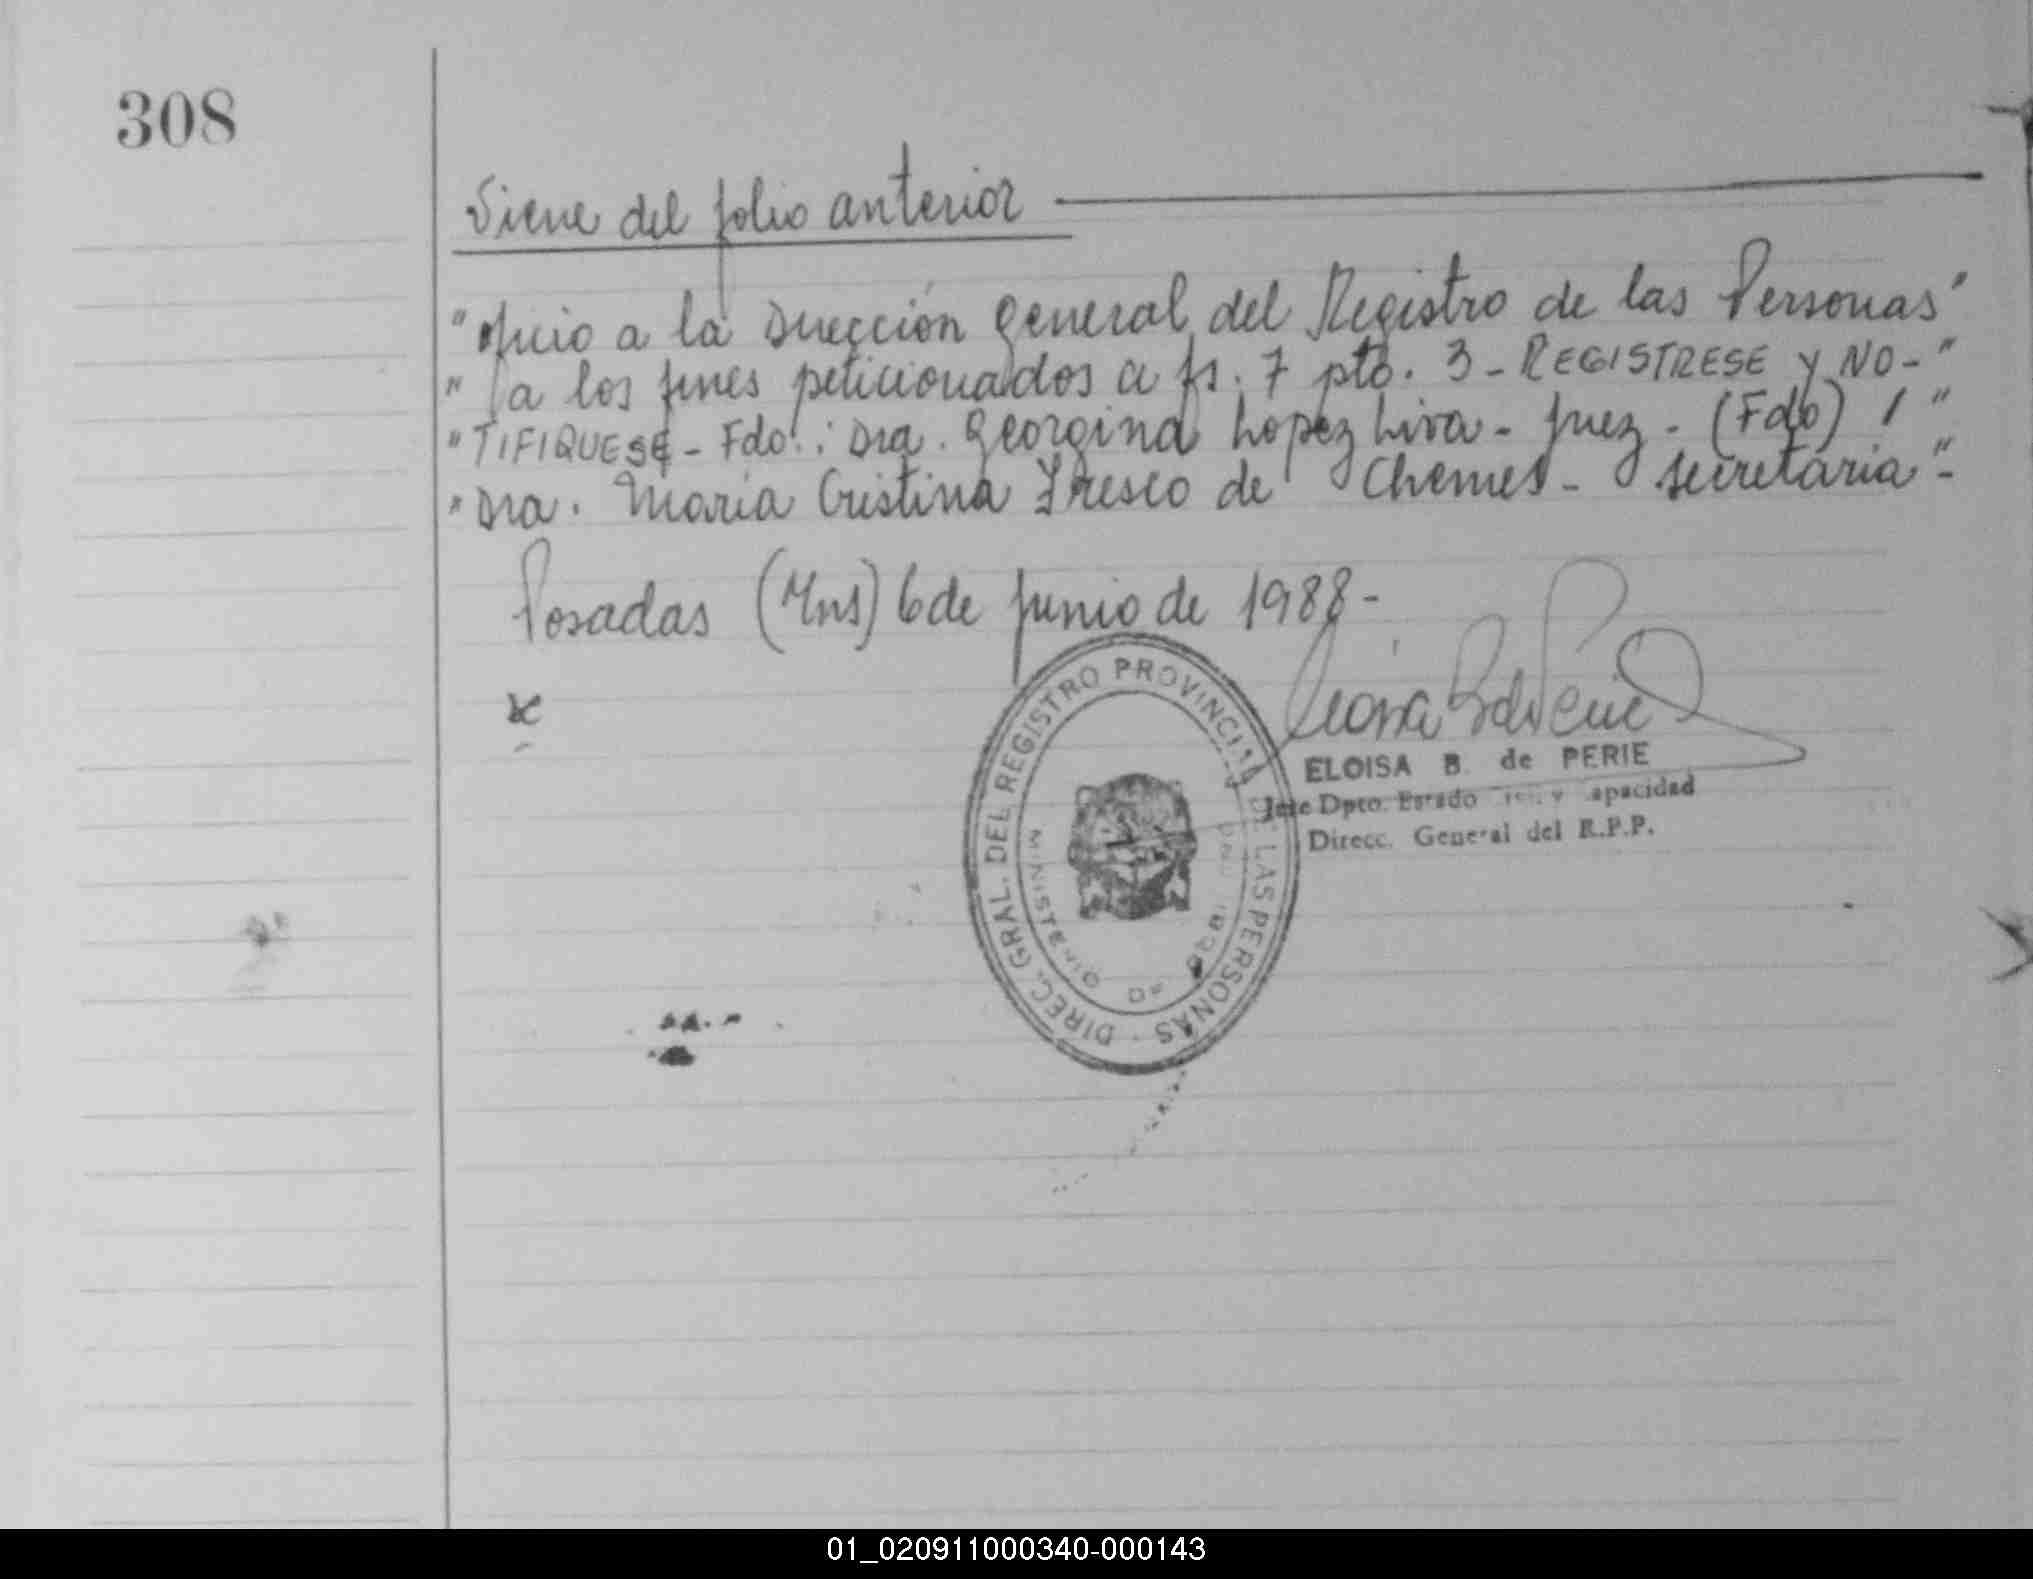 308
Viene del folio anterior
"oficio a la Dirección General del Registro de las Personas"
" a los fines peticionados a fs. 7 pto. 3 - REGISTRESE y NO-"
"TIFIQUESE - Fdo.: Dra. Georgina Lopez Liva - Juez - (Fdo) / "
"Dra. Maria Cristina Fresco de Chemes - Secretaria"-
Posadas (Mns) 6 de Junio de 1988-
DIREC. GRAL. DEL REGISTRO PROVINCIAL DE LAS PERSONAS
MINISTERIO DE
ELOISA B. de PERIE
Jefe Dpto. Estado Civil y Capacidad
Direcc. General del R.P.P.
01_020911000340-000143